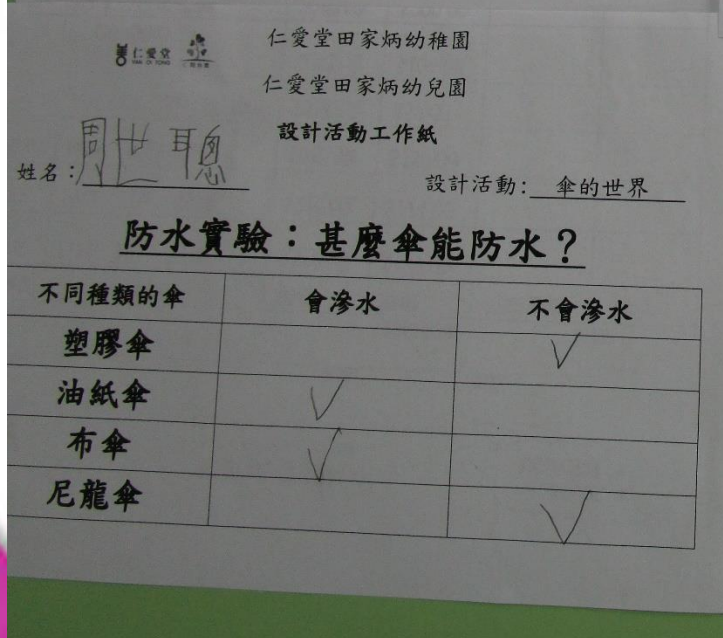 仁愛堂
YAN OI TONG
仁愛堂田家炳幼稚園
仁愛堂田家炳幼兒園
設計活動工作紙
姓名：周世聰
設計活動：傘的世界
防水實驗：甚麼傘能防水？
不同種類的傘 會滲水 不會滲水
塑膠傘 ✓
油紙傘 ✓
布傘 ✓
尼龍傘 ✓